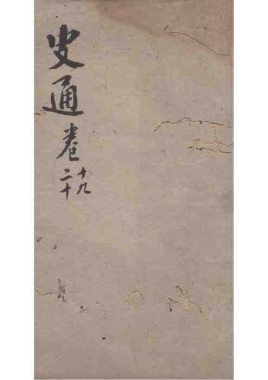 史通卷十九
二十